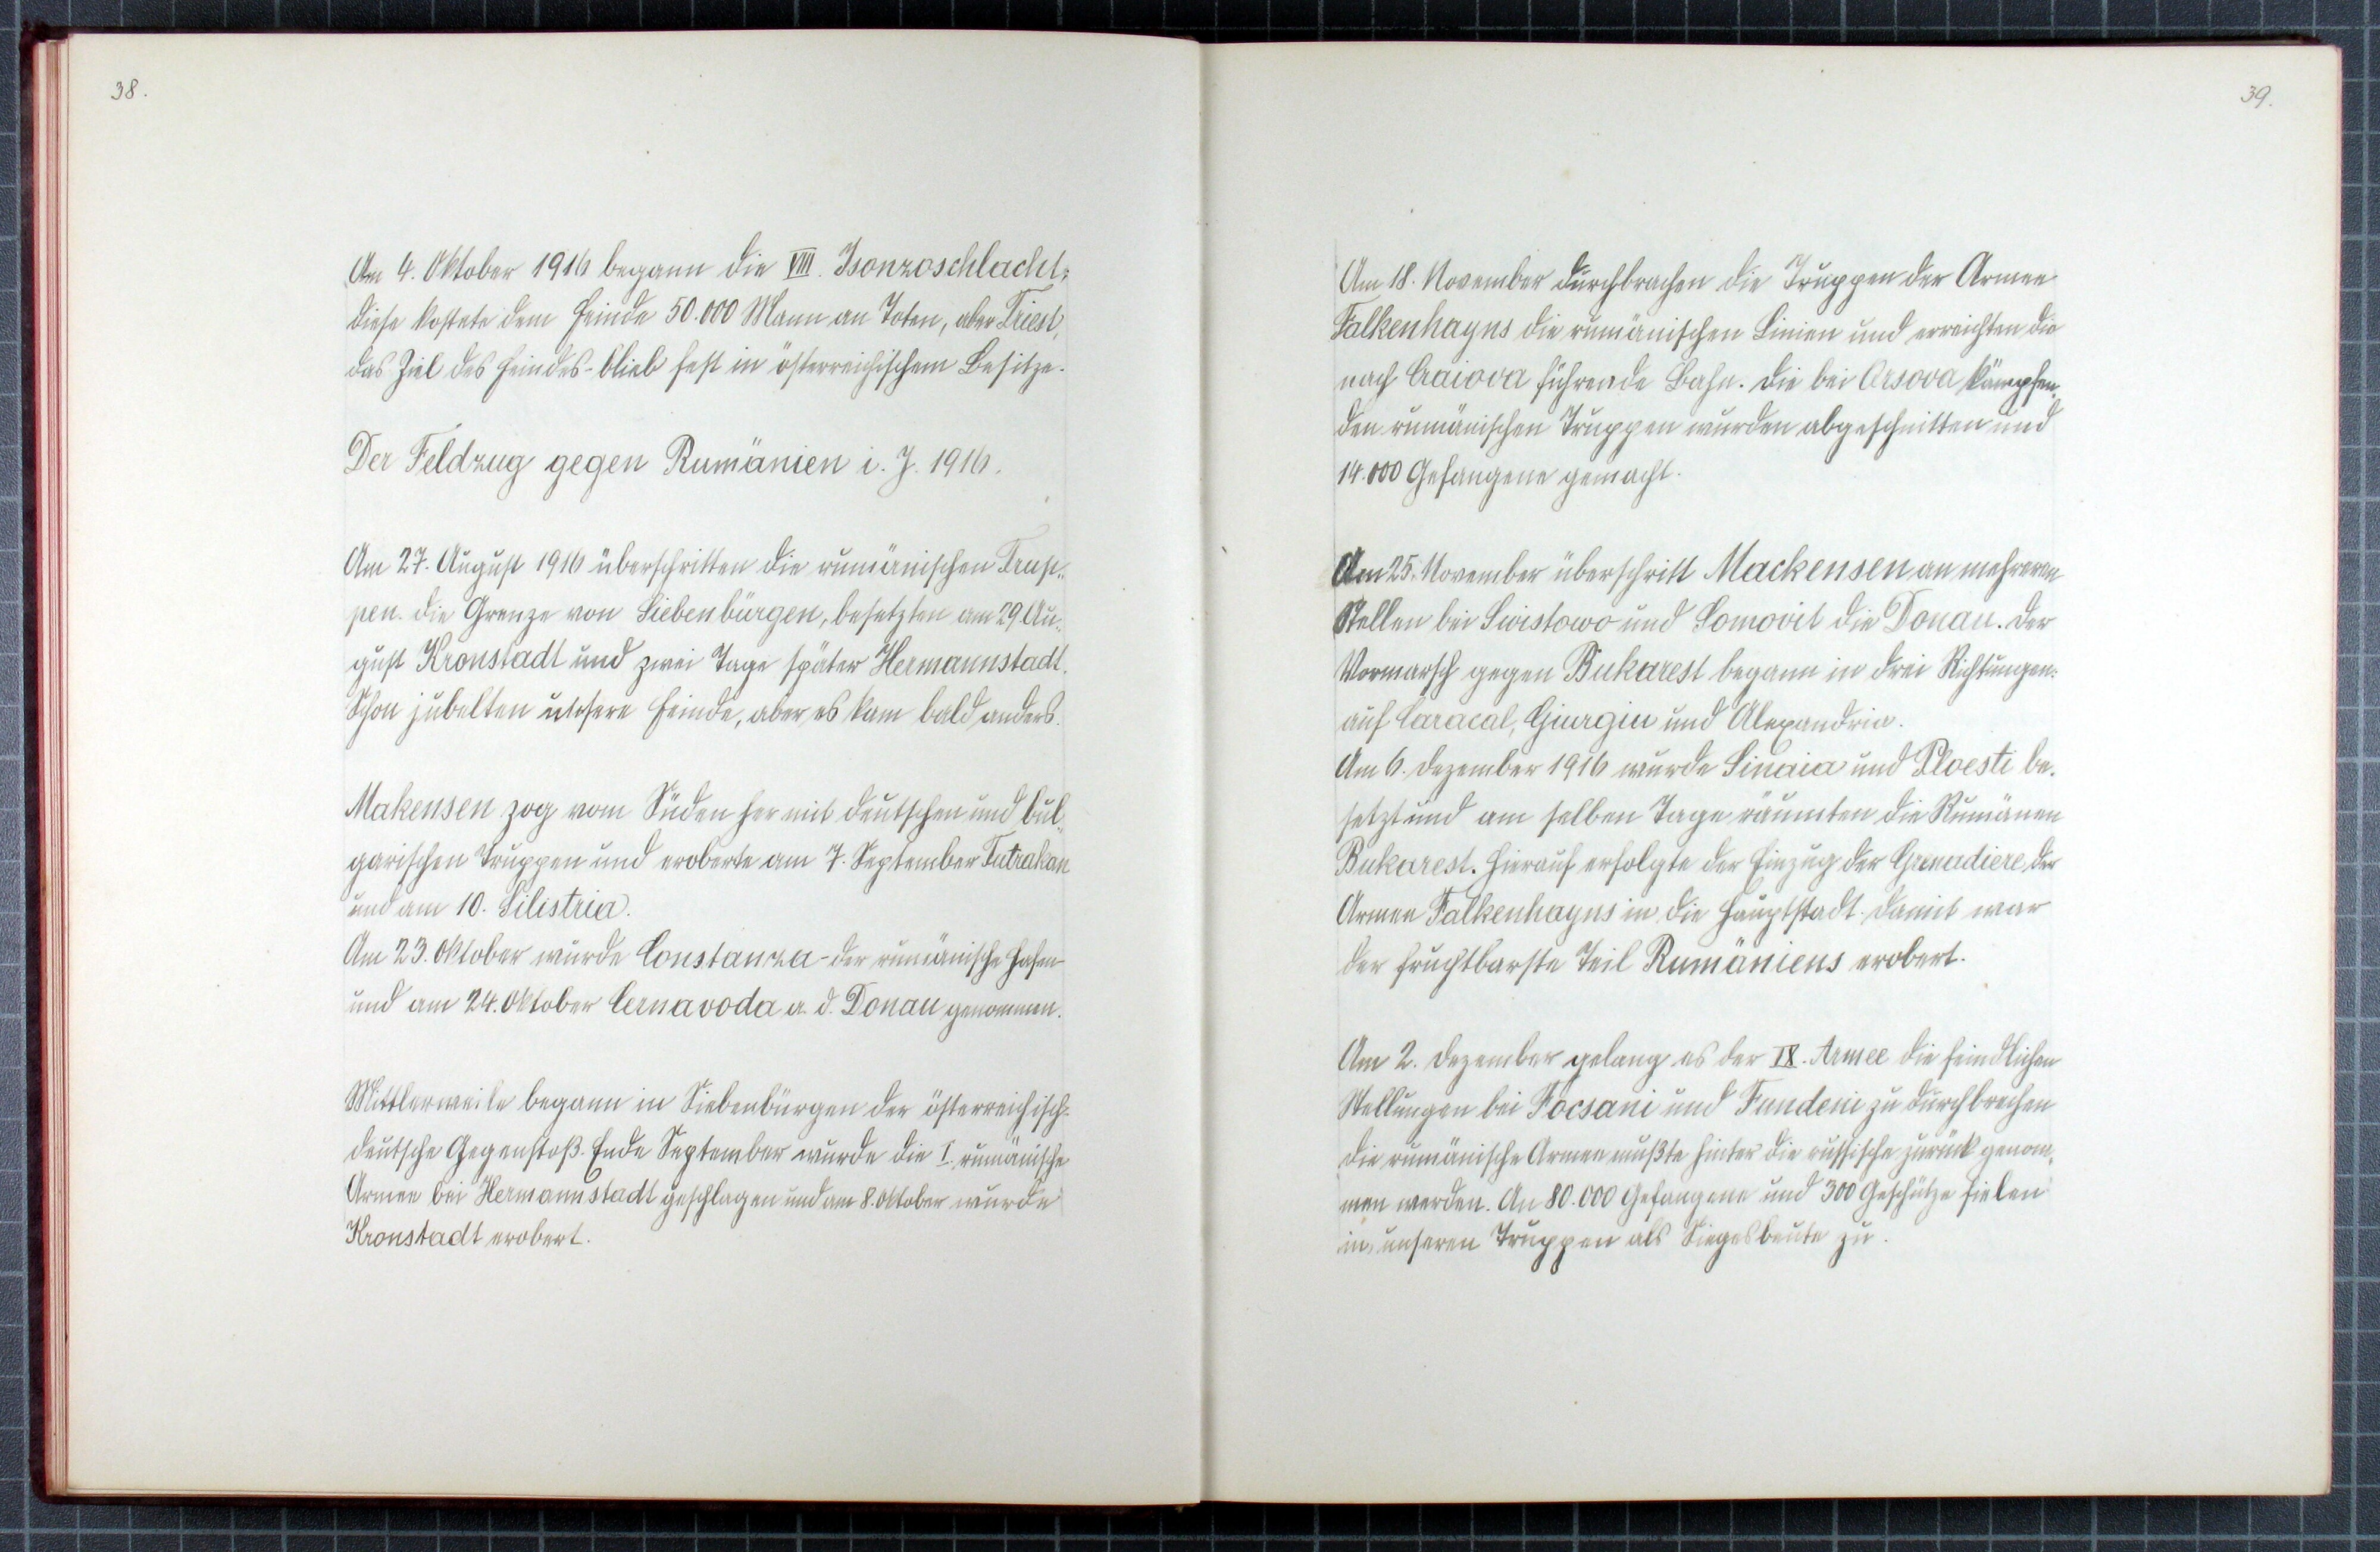 38.
Am 4. Oktober 1916 begann die VIII. Isonzoschlacht;
diese kostete dem Feinde 50.000 Mann an Toten, aber Triest,
das Ziel des Feindes - blieb fest in österreichischem Besitze.
Der Feldzug gegen Rumänien i. J. 1916.
Am 27. August 1916 überschritten die rumänischen Trup-
pen die Grenze von Siebenbürgen, besetzten am 29. Au-
gust Kronstadt und zwei Tage später Hermannstadt.
Schon jubelten unsere Feinde, aber es kam bald anders.
Makensen zog vom Süden her mit deutschen und bul-
garischen Truppen und eroberte am 7. September Tutrakan
und am 10. Silistria.
Am 23. Oktober wurde Constanza - der rumänische Hafen -
und am 24. Oktober Cernavoda a. d. Donau genommen.
Mittlerweile begann in Siebenbürgen der österreichisch-
deutsche Gegenstoß. Ende September wurde die I. rumänische
Armee bei Hermannstadt geschlagen und am 8. Oktober wurde
Kronstadt erobert.
39.
Am 18. November durchbrachen die Truppen der Armee
Falkenhayns die rumänischen Linien und erreichten die
nach Craiova führende Bahn. Die bei Orsova kämpfen-
den rumänischen Truppen wurden abgeschnitten und
14.000 Gefangene gemacht.
Am 25. November überschritt Mackensen an mehreren
Stellen bei Swistowo und Somovit die Donau. Der
Vormarsch gegen Bukarest begann in drei Richtungen:
auf Caracal, Giurgiu und Alexandria.
Am 6. Dezember 1916 wurde Sinaia und Ploesti be-
setzt und am selben Tage räumten die Rumänen
Bukarest. Hierauf erfolgte der Einzug der Grenadiere der
Armee Falkenhayns in die Hauptstadt. Damit war
der fruchtbarste Teil Rumäniens erobert.
Am 2. Dezember gelang es der IX. Armee die feindlichen
Stellungen bei Focsani und Fundeni zu durchbrechen
die rumänische Armee mußte hinter die russische zurück genom-
men werden. An 80.000 Gefangene und 300 Geschütze fielen
in unseren Truppen als Siegesbeute zu.